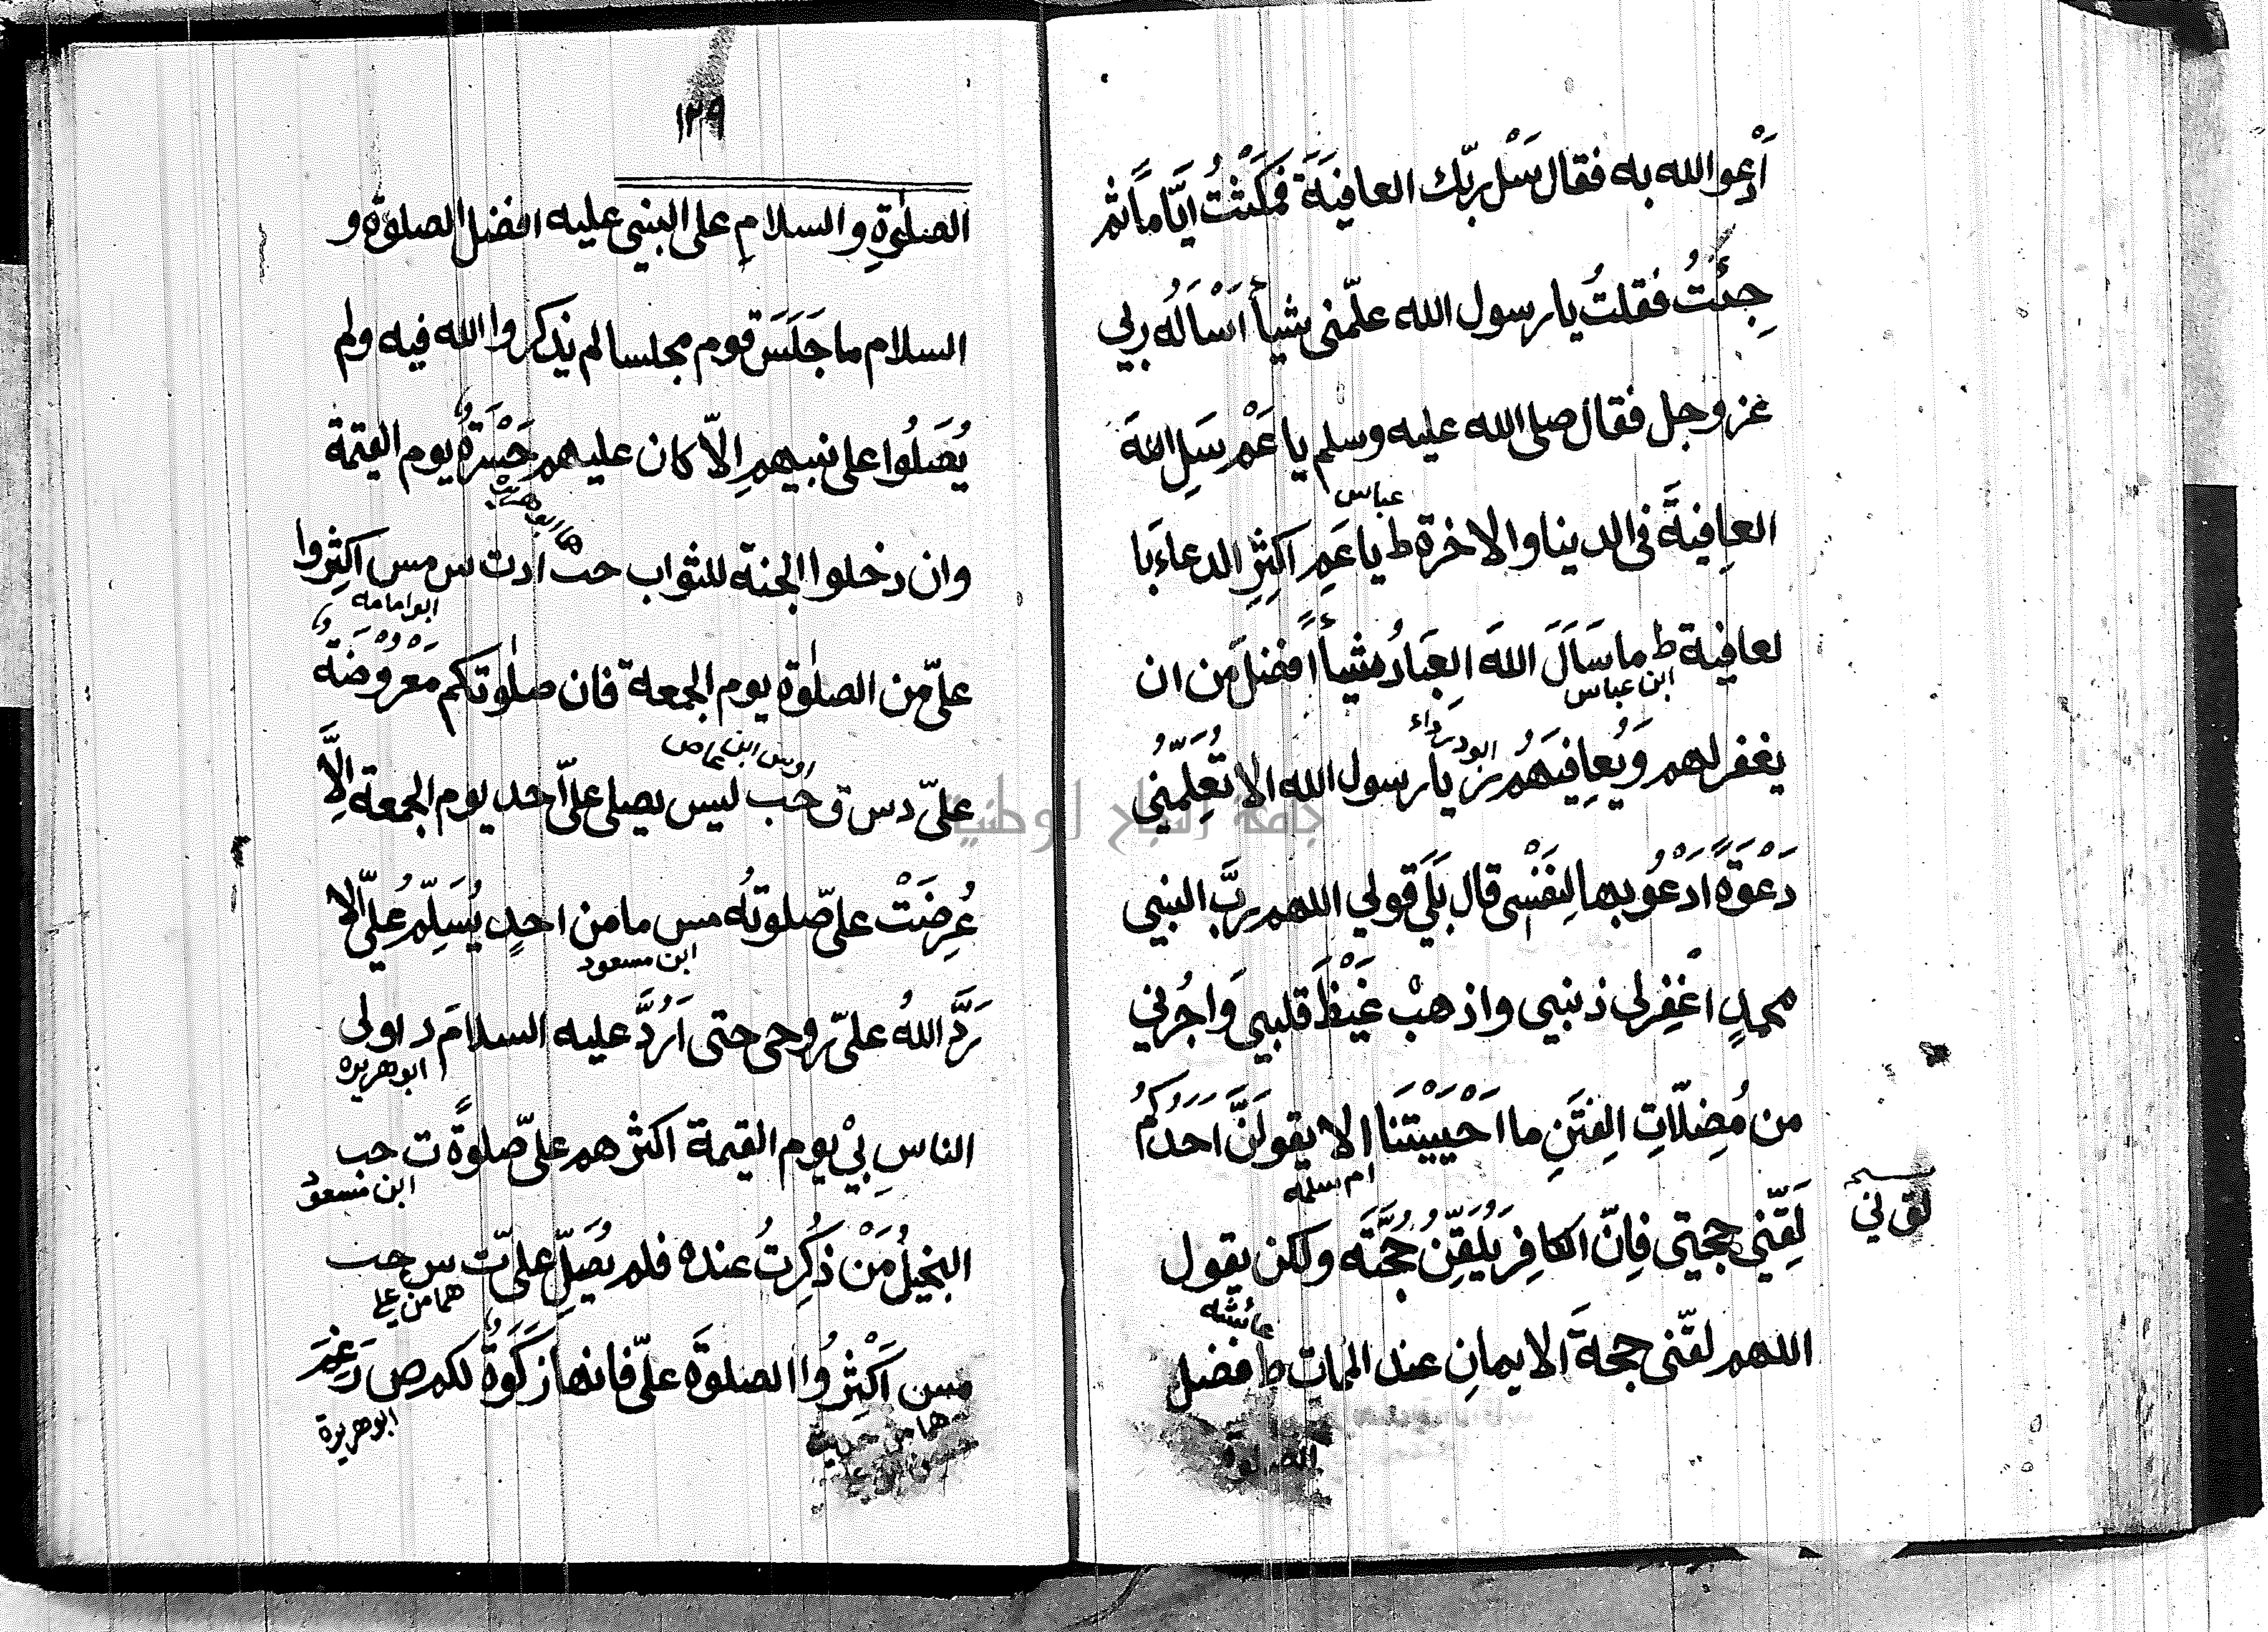 أَدْعو الله به فقال سَلْ ربّك العافِيَةَ فمَكَثْتُ ايَّاماً ثم
جِئْتُ فقلتُ يا رسول الله علّمنى شيأً اَسْاَلُه ربي
عز وجل فقال صلى الله عليه وسلم يا عَمِّ سَلِ اللهَ
العافِيةَ فى الدينا والاخرة ط يا عَمِ اكثِرِ الدعاءَ با
عباس
لعافِية ط ما سَاَلَ اللهَ العِبَادُ شيأً افضلَ من ان
ابن عباس
يغفر لهم وَيُعافِيَهُم ز يا رسول الله الا تُعَلِّمُنِي
ابو درداء
دَعْوَةً اَدْعُو بها لِنَفْسِى قال بَلَي قولي اللهم ربَّ النبي
محمدٍ اغْفِر لى ذنبي واذهبْ غَيْظَ قلبي وَاجُرني
من مُضِلّاتِ الفِتَنِ ما اَحْيَيْتَنَا ا لا يقولَنَّ اَحَدُكُمُ
ام سلمه
لَقِّنّي حجتي فاِنّ الكافِرَ يُلَقَّنُ حُجَّتَه ولكن يقول
لق ني
عائشه
اللهم لقّنى حجةَ الايمانِ عند الممات ط فضل
الصلوة
١٢٩
الصلوٰةِ والسلامِ على النبى عليه افضل الصلوٰة و
السلام ما جَلَسَ قوم مجلسا لم يذكروا الله فيه ولم
يُصَلُوا على نبيهم اِلّا كان عليهم حَسْرَةً يوم القيٰمة
وان دخلوا الجنة للثواب حب ا د ت س مس اكثِروا
هما ابو هريرة
ابو امامه
عليّ من الصلوٰة يوم الجمعة فان صلٰوتكم مَعْرُوْضَةٌ
عليّ د س ق حب ليس يصلى عليّ احد يوم الجمعة اِلَّا
اوس ابن
عُرِضَتْ عليّ صلوتُه مس ما من احدٍ يُسَلِّمُ عليّ الا
ابن مسعود
رَدَّ اللهُ عليّ روحى حتى اَرُدَّ عليه السلامَ د اولى
ابو هريره
الناسِ بِيْ يوم القيمة اكثرهم عليّ صلوةً ت حب
ابن مسعود
البخيلُ مَنْ ذُكِرتُ عنده فلم يُصَلِّ عليّ ت س حب
هما من علي
مس اَكْثِرُوا الصلوةَ عليّ فانها زَكَوةٌ لكم ص رَغِمَ
ابو هريرة